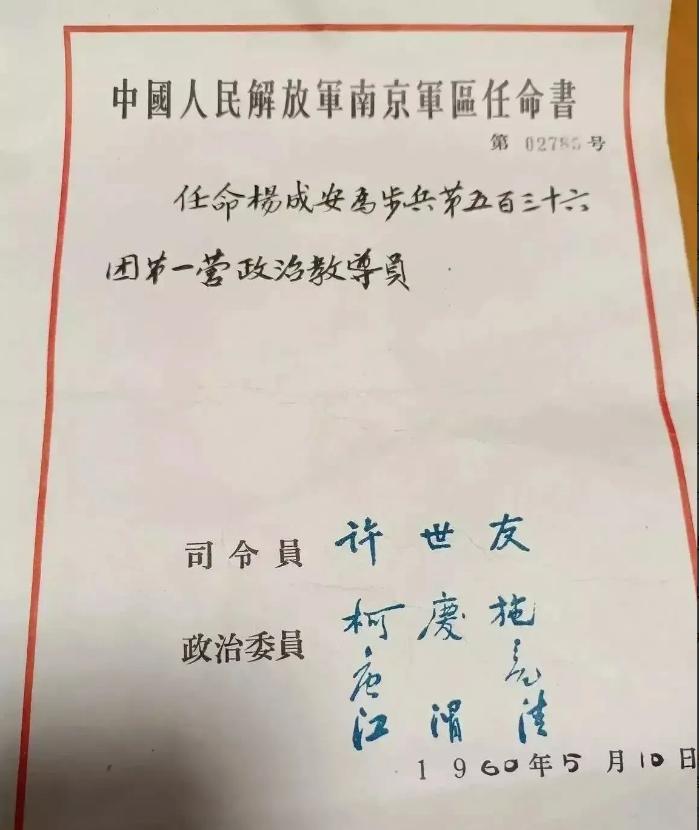 中國人民解放軍南京軍區任命書
第 02785 号
任命楊成安為步兵第五百三十六
团第一营政治教導員
司令員 许世友
政治委員 柯慶施
唐亮
江渭清
1960年5月10日